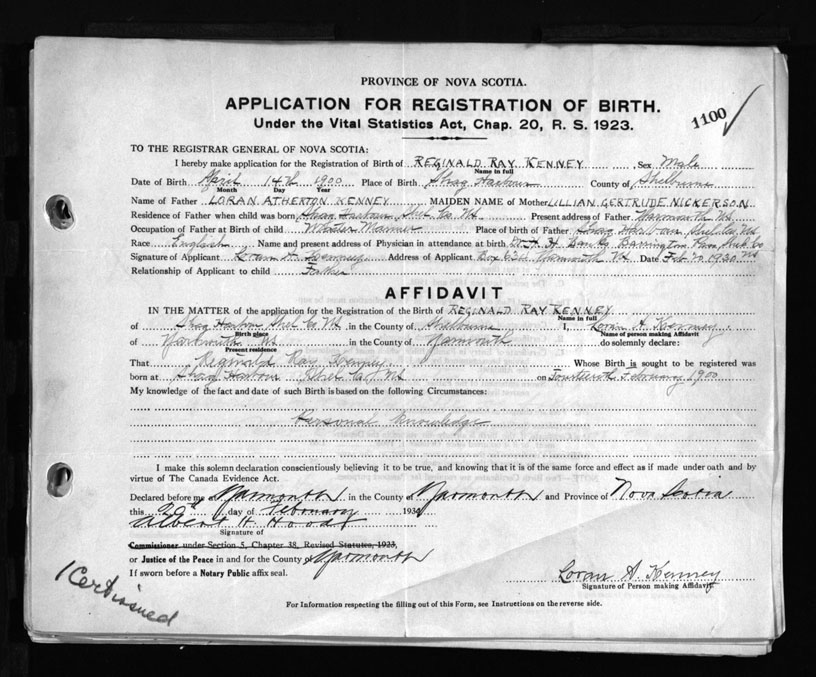 PROVINCE OF NOVA SCOTIA.
APPLICATION FOR REGISTRATION OF BIRTH.
1100
Under the Vital Statistics Act, Chap. 20, R. S. 1923.
TO THE REGISTRAR GENERAL OF NOVA SCOTIA:
I hereby make application for the Registration of Birth of REGINALD RAY KENNEY Sex Male
Name in full
Date of Birth April 14th 1900 Place of Birth Shag Harbour County of Shelburne
Month Day Year
Name of Father LORAN ATHERTON KENNEY MAIDEN NAME of Mother LILLIAN GERTRUDE NICKERSON
Residence of Father when child was born Shag Harbour Shel Co. NS Present address of Father Yarmouth NS
Occupation of Father at Birth of child Master Mariner Place of birth of Father Shag Harbour Shel Co. NS
Race English Name and present address of Physician in attendance at birth Dr. Barrington
Signature of Applicant Loran A. Kenney Address of Applicant Box Yarmouth NS Date Feb 20 1930
Relationship of Applicant to child Father
AFFIDAVIT
IN THE MATTER of the application for the Registration of the Birth of REGINALD RAY KENNEY
Name in full
of Shag Harbour Shel Co NS in the County of Shelburne I, Loran A. Kenney
Birth place Name of person making Affidavit
of Yarmouth NS in the County of Yarmouth do solemnly declare:
Present residence
That Reginald Ray Kenney Whose Birth is sought to be registered was
born at Shag Harbour Shel Co. NS on Fourteenth February 1900
My knowledge of the fact and date of such Birth is based on the following Circumstances:
Personal Knowledge
I make this solemn declaration conscientiously believing it to be true, and knowing that it is of the same force and effect as if made under oath and by
virtue of The Canada Evidence Act.
Declared before me at Yarmouth in the County of Yarmouth and Province of Nova Scotia
this 20th day of February 193
Albert H. Hood
Signature of
Commissioner under Section 5, Chapter 38, Revised Statutes, 1923,
or Justice of the Peace in and for the County of Yarmouth
If sworn before a Notary Public affix seal.
Loran A Kenney
Signature of Person making Affidavit
1 Cert issued
For Information respecting the filling out of this Form, see Instructions on the reverse side.